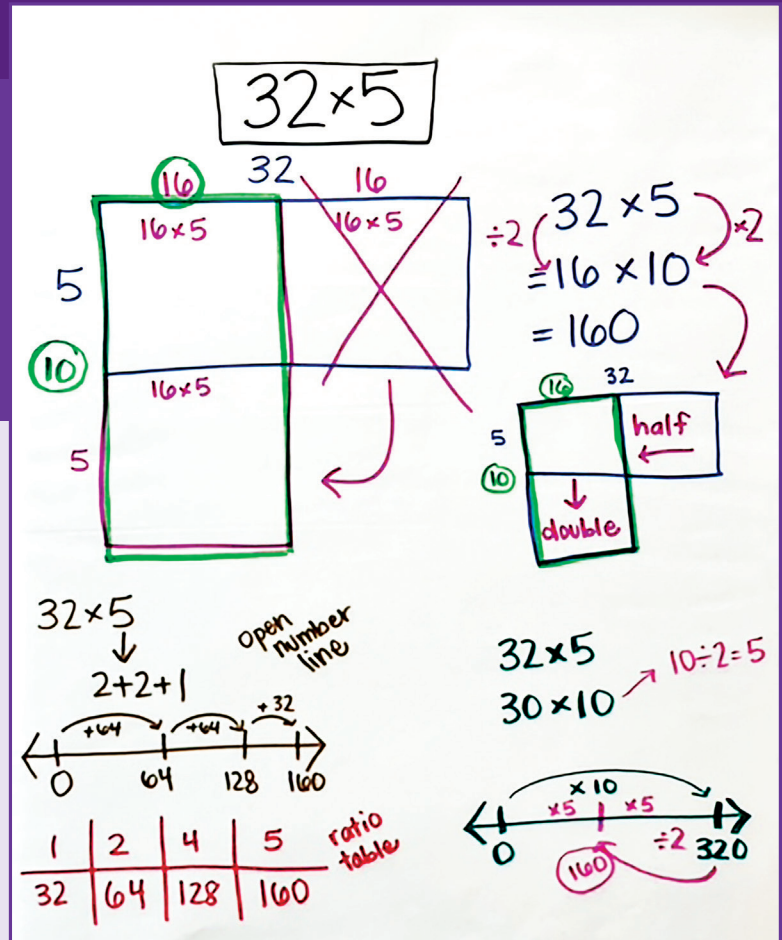 32×5
16 32 16
16×5 16×5
5
10
16×5
5
÷2 32×5 ×2
=16×10
=160
16 32
5 half
10
double
32×5
2+2+1
open
number
line
+64 +64 +32
0 64 128 160
1 2 4 5
32 64 128 160
ratio
table
32×5
30×10 10÷2=5
×10
×5 ×5
0 ÷2 320
160